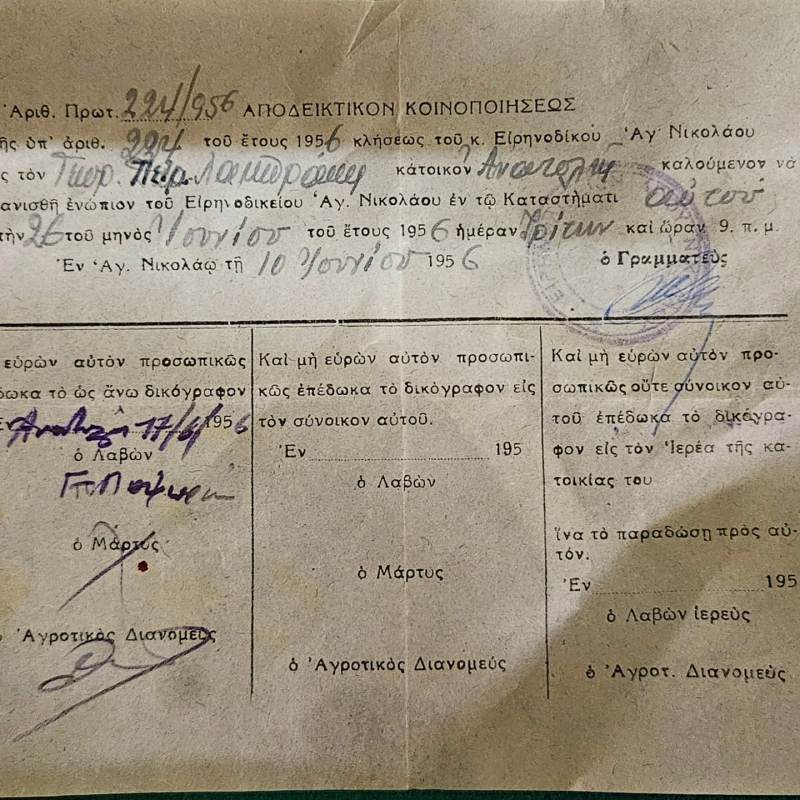 Ἀριθ. Πρωτ. 224/956 ΑΠΟΔΕΙΚΤΙΚΟΝ ΚΟΙΝΟΠΟΙΗΣΕΩΣ
ῆς ὑπ' ἀριθ. 224 τοῦ ἔτους 1956 κλήσεως τοῦ κ. Εἰρηνοδίκου Ἁγ Νικολάου
ς τὸν Γεωρ. Πέτρ. Λαμπράκη κάτοικον Ἀνατολῆς καλούμενον νὰ
ανισθῆ ἐνώπιον τοῦ Εἰρηνοδικείου Ἁγ. Νικολάου ἐν τῷ Καταστήματι αὐτοῦ
τὴν 26 τοῦ μηνὸς Ἰουνίου τοῦ ἔτους 1956 ἡμέραν Τρίτην καὶ ὥραν 9. π. μ.
Ἐν Ἁγ. Νικολάῳ τῇ 10 Ἰουνίου 1956 ὁ Γραμματεὺς
εὑρὼν αὐτὸν προσωπικῶς
δωκα τὸ ὡς ἄνω δικόγραφον
Ἀνατολὴ 17/6/1956
ὁ Λαβὼν
ὁ Μάρτυς
ὁ Ἀγροτικὸς Διανομεὺς
Καὶ μὴ εὑρὼν αὐτὸν προσωπι-
κῶς ἐπέδωκα τὸ δικόγραφον εἰς
τὸν σύνοικον αὐτοῦ.
Ἐν 195
ὁ Λαβὼν
ὁ Μάρτυς
ὁ Ἀγροτικὸς Διανομεύς
Καὶ μὴ εὑρὼν αὐτὸν προ-
σωπικῶς οὔτε σύνοικον αὐ-
τοῦ ἐπέδωκα τὸ δικόγρα-
φον εἰς τὸν Ἱερέα τῆς κα-
τοικίας του
ἵνα τὸ παραδώσῃ πρὸς αὐ-
τόν.
Ἐν 195
ὁ Λαβὼν ἱερεὺς
ὁ Ἀγροτ. Διανομεὺς